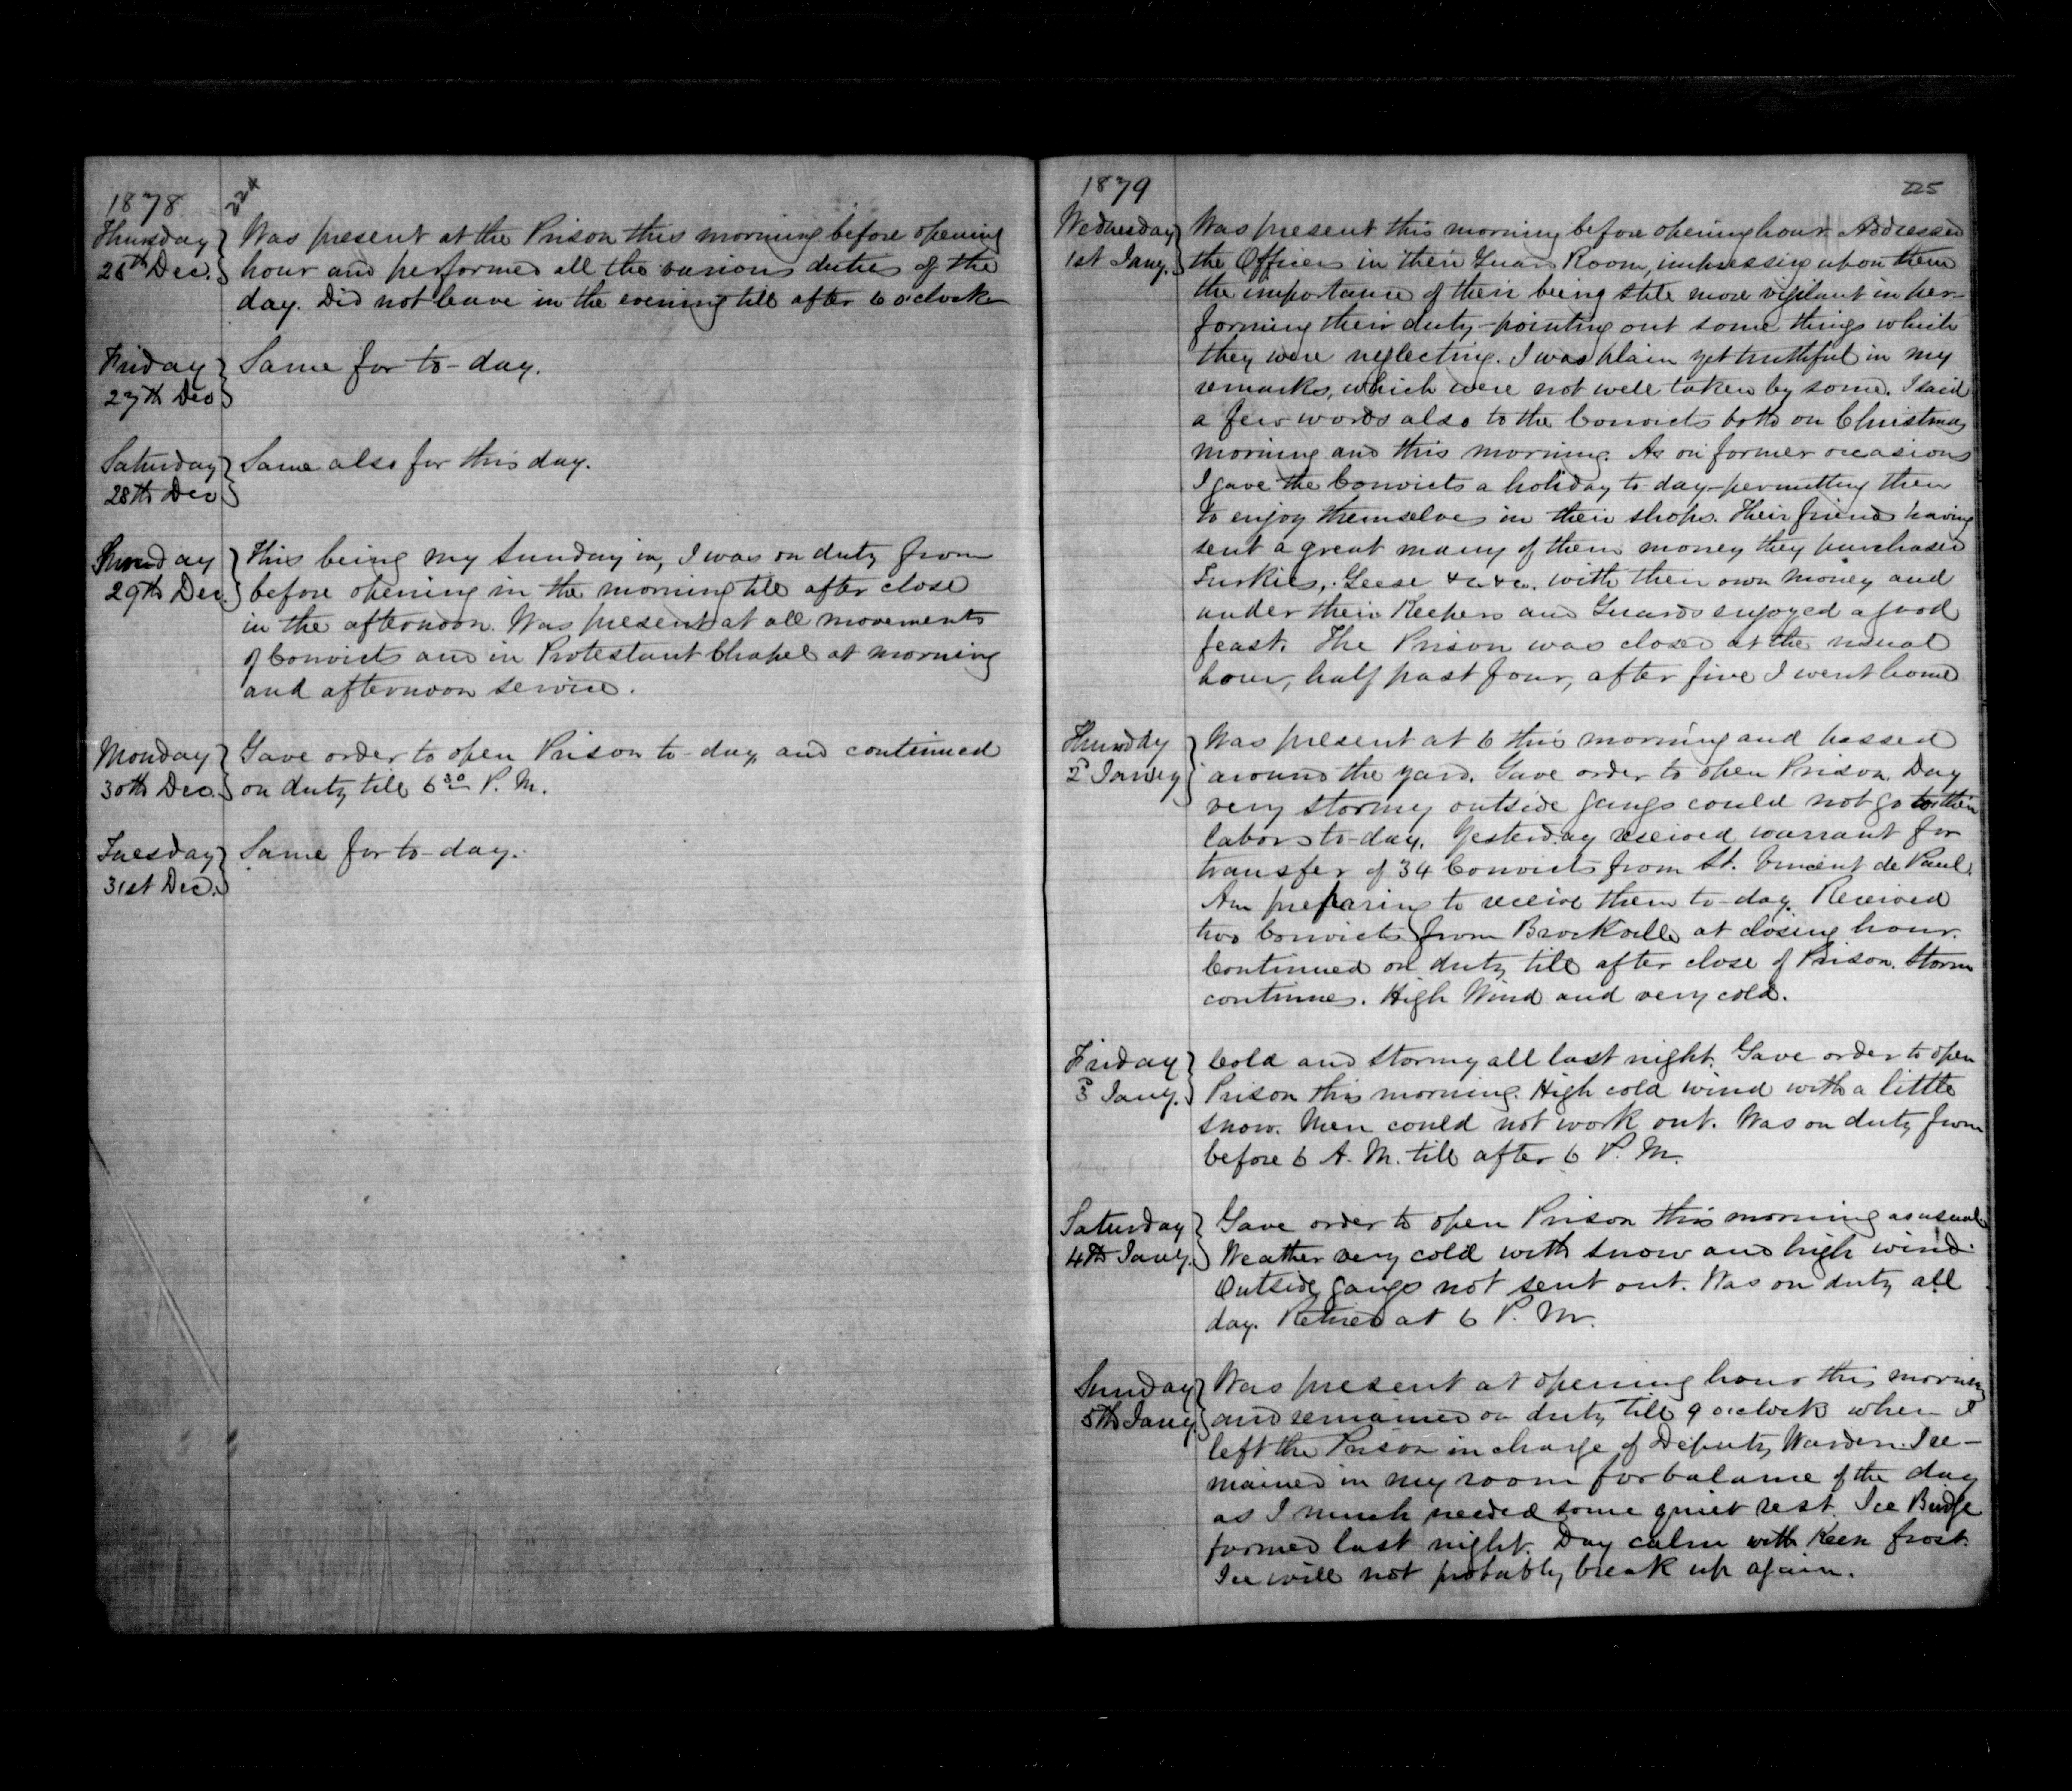 1878
224
Thursday
26th Dec.
Was present at the Prison this morning before opening
hour and performed all the various duties of the
day. Did not leave in the evening till after 6 o'clock
Friday
27th Dec
Same for to-day.
Saturday
28th Dec
Same also for this day.
Sunday
29th Dec.
This being my Sunday in, I was on duty from
before opening in the morning till after close
in the afternoon. Was present at all movements
of Convicts and in Protestant Chapel at morning
and afternoon service.
Monday
30th Dec.
Gave order to open Prison to-day, and continued
on duty till 6 30 P. M.
Tuesday
31st Dec.
Same for to-day.
1879
225
Wednesday
1st Jany.
Was present this morning before opening hour. Addressed
the Officers in their Guard Room, impressing upon them
the importance of their being still more vigilant in per-
forming their duty - pointing out some things which
they were neglecting. I was plain yet truthful in my
remarks, which were not well taken by some. I said
a few words also to the Convicts both on Christmas
morning and this morning. As on former occasions
I gave the Convicts a holiday to-day - permitting them
to enjoy themselves in their shops. Their friends having
sent a great many of them money they purchased
Turkies, Geese &c. &c. with their own money and
under their Keepers and Guards enjoyed a good
feast. The Prison was closed at the usual
hour, half past four, after five I went home
Thursday
2d Janry
Was present at 6 this morning and passed
around the yard. Gave order to open Prison. Day
very stormy outside gangs could not go to their
labors to-day. Yesterday received warrant for
transfer of 34 Convicts from St. Vincent de Paul.
Am preparing to receive them to-day. Received
two Convicts from Brockville at closing hour.
Continued on duty till after close of Prison. Storm
continues. High Wind and very cold.
Friday
3d Jany.
Cold and stormy all last night. Gave order to open
Prison this morning. High cold wind with a little
snow. Men could not work out. Was on duty from
before 6 A. M. till after 6 P. M.
Saturday
4th Jany.
Gave order to open Prison this morning as usual
Weather very cold with snow and high wind.
Outside gangs not sent out. Was on duty all
day. Retired at 6 P. M.
Sunday
5th Jany.
Was present at opening hour this morning
and remained on duty till 9 o'clock when I
left the Prison in charge of Deputy Warden. I re-
mained in my room for balance of the day
as I much needed some quiet rest. Ice Bridge
formed last night. Day calm with keen frost.
Ice will not probably break up again.